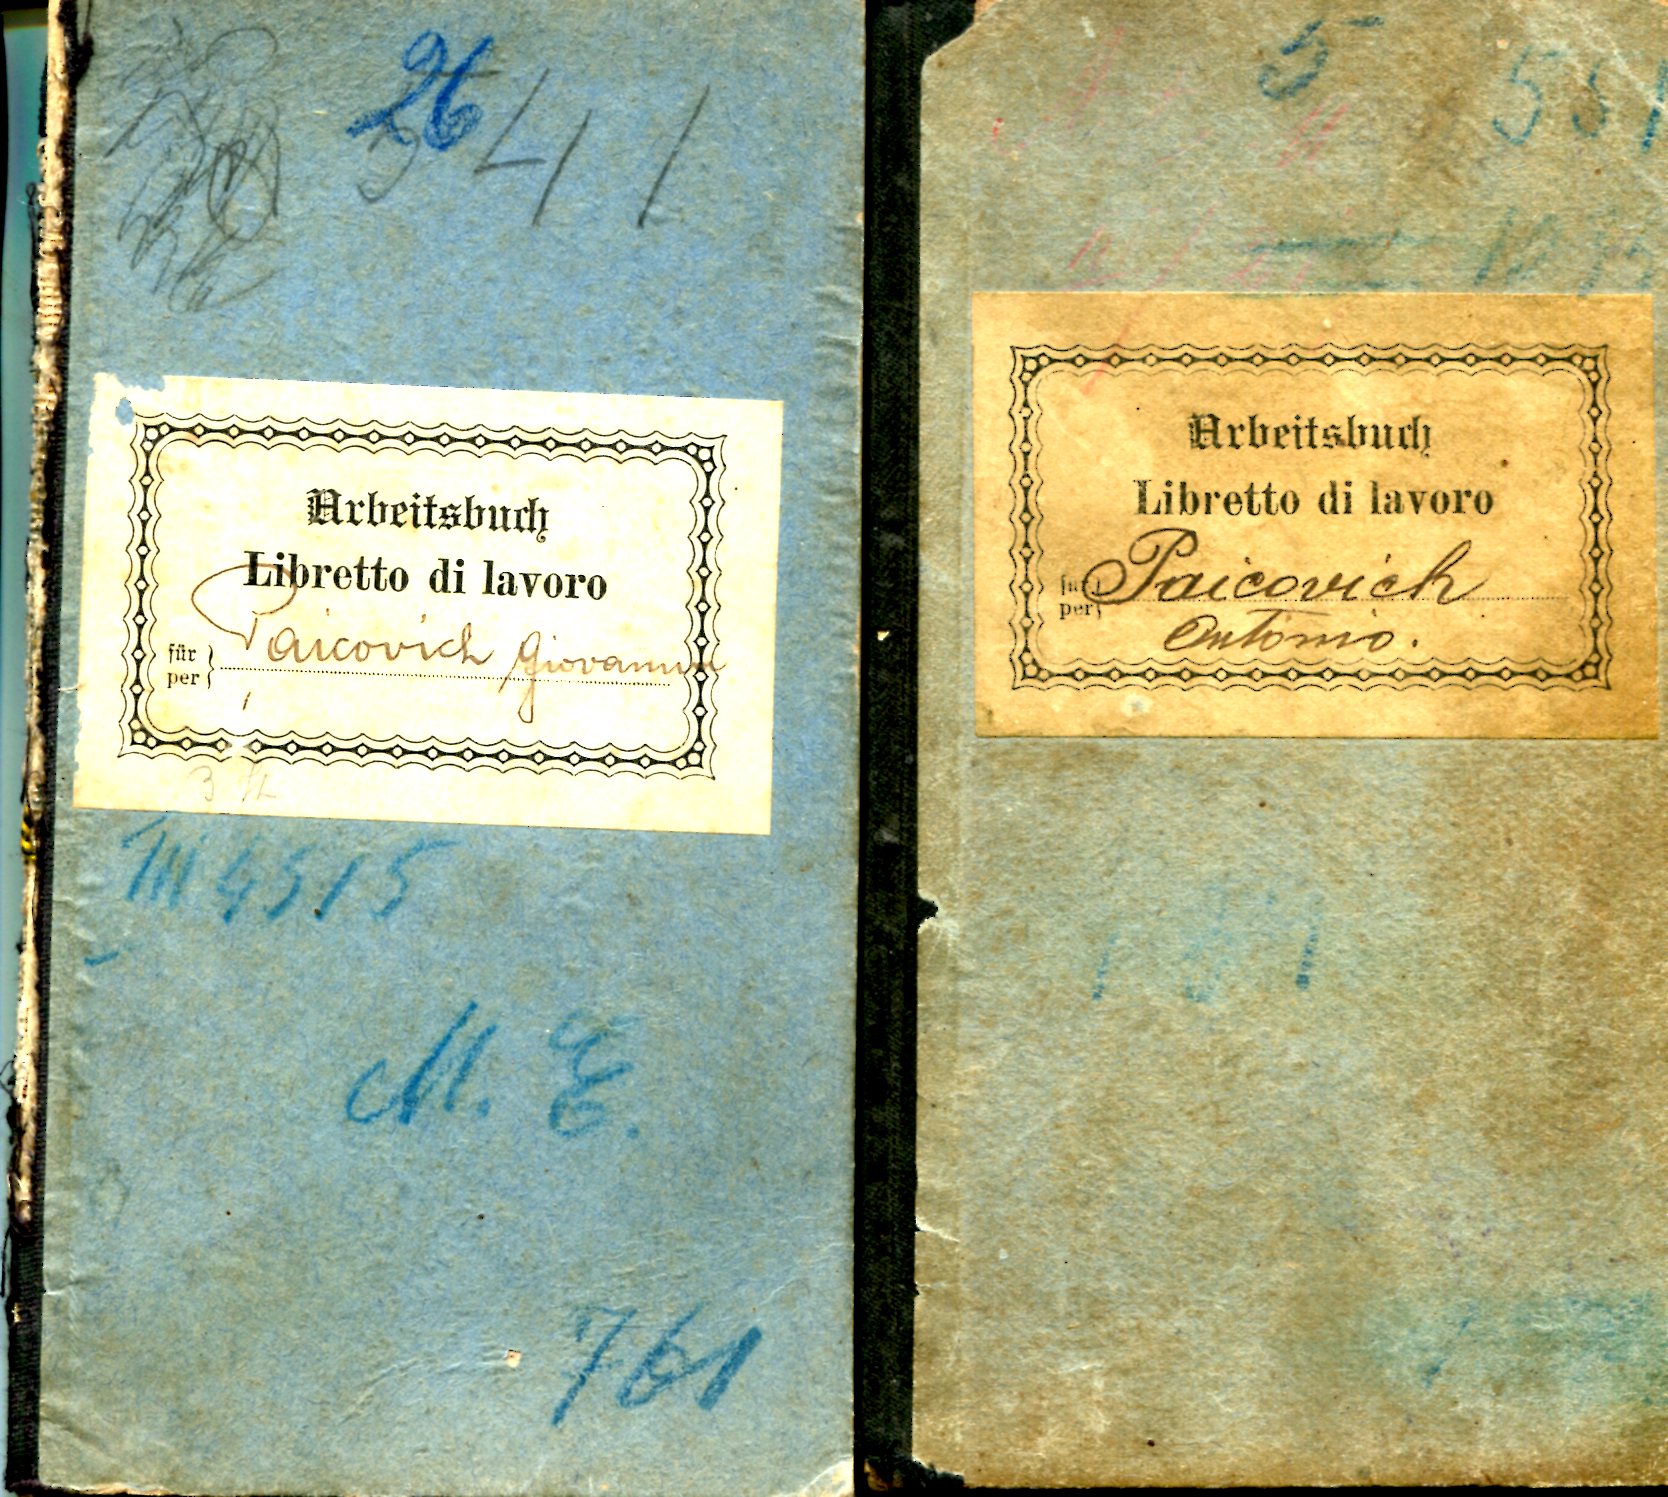 26
5411
Arbeitsbuch
Libretto di lavoro
für
per
Paicovich Giovanni
III 4515
M. E.
761
5
551
Arbeitsbuch
Libretto di lavoro
für
per
Paicovich
Antonio.